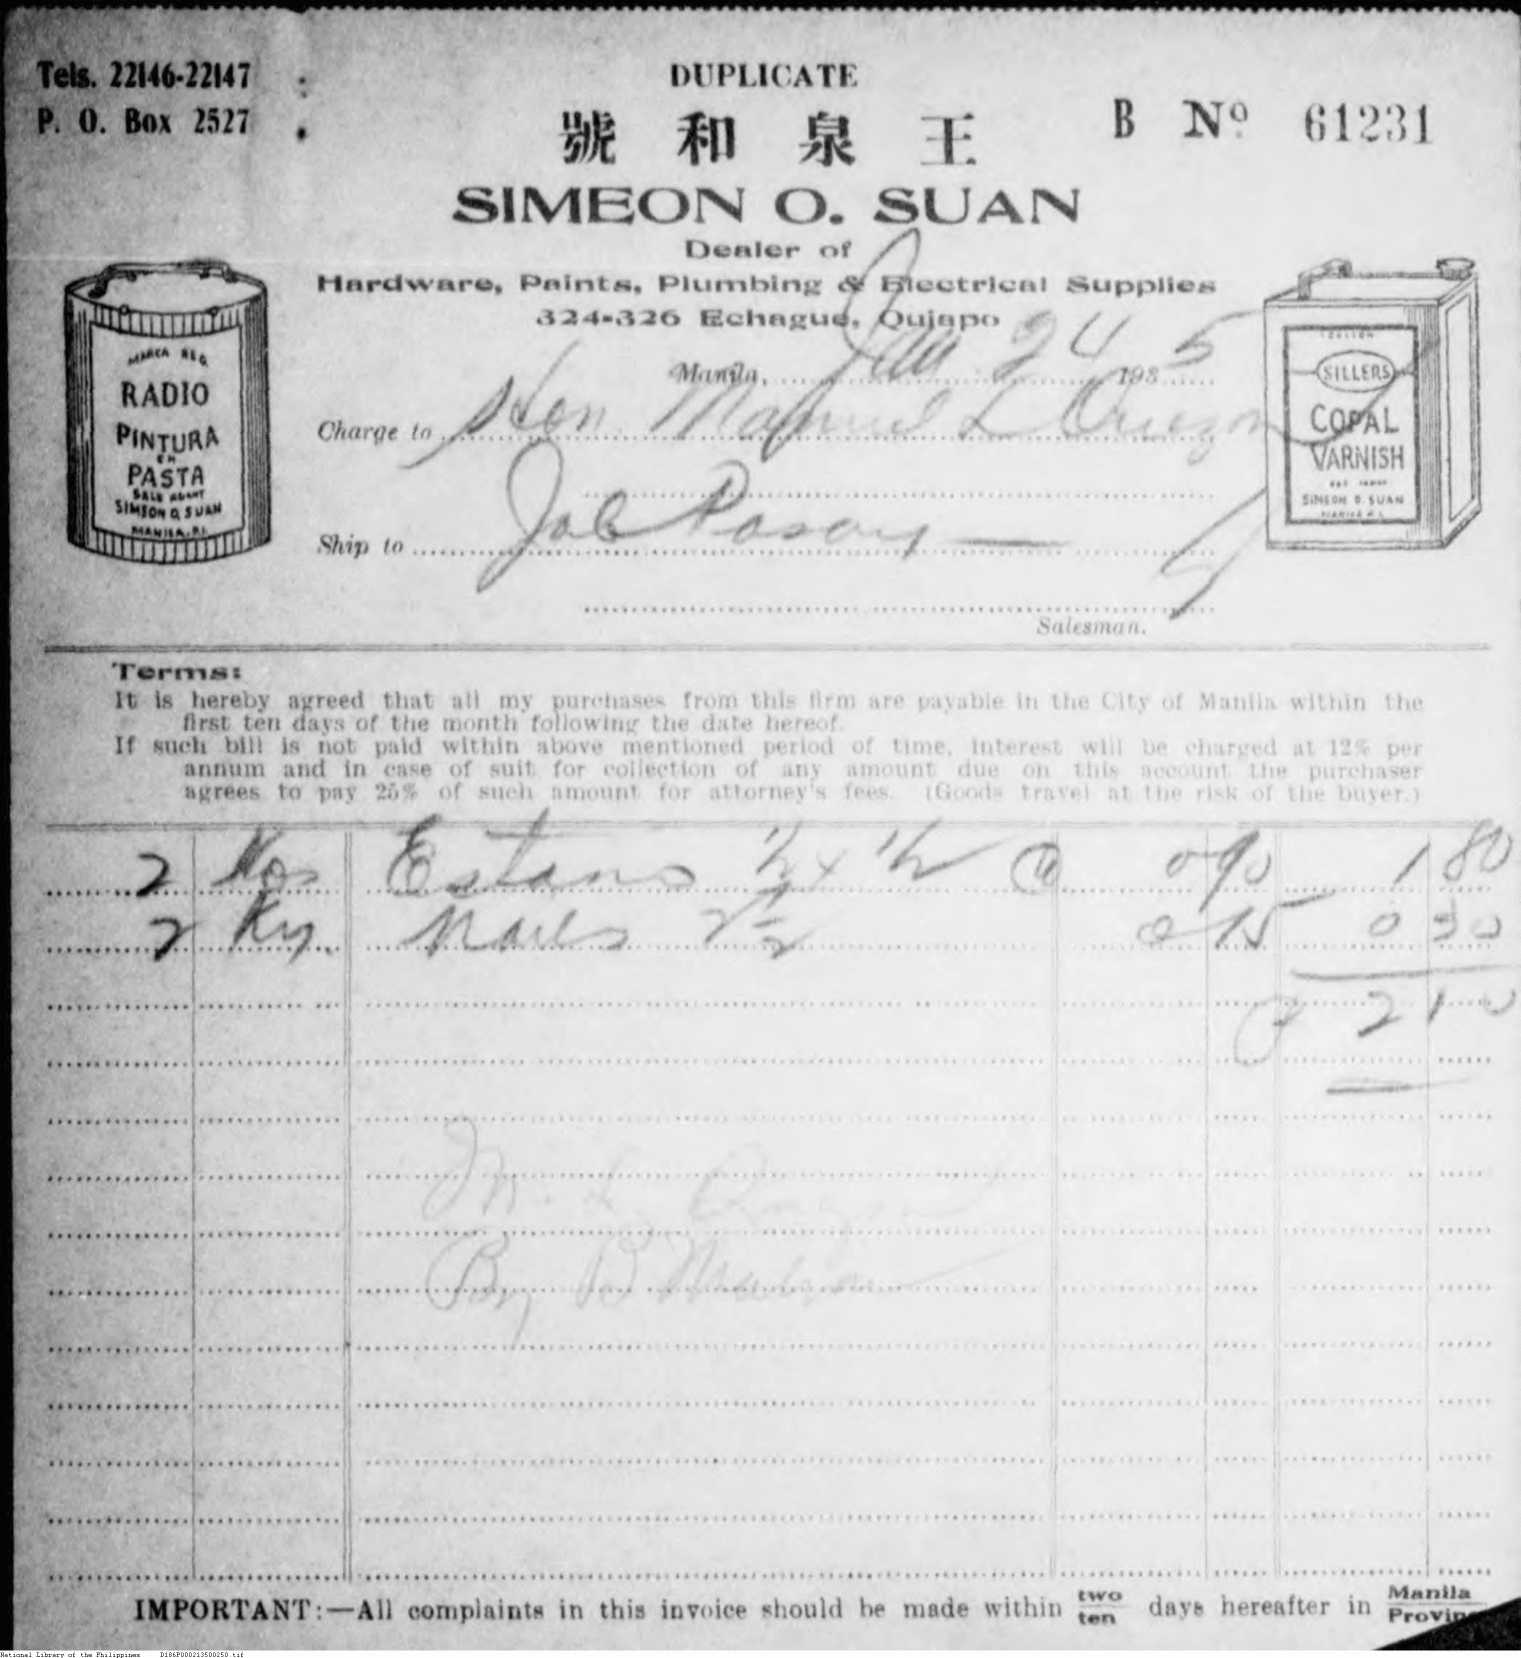 Tels. 22146-22147 :
P. O. Box 2527 :
DUPLICATE
號 和 泉 王
B Nº 61231
SIMEON O. SUAN
Dealer of
Hardware, Paints, Plumbing & Electrical Supplies
324-326 Echague, Quiapo
MARCA REG.
RADIO
PINTURA
EN
PASTA
SALE AGENT
SIMEON O. SUAN
MANILA, P.I.
1 GALLON
SILLERS
COPAL
VARNISH
SIMEON O. SUAN
MANILA P.I.
Manila, Jan 24 1935
Charge to Hon. Manuel L Quezon
Ship to Job Pasay
Salesman.
Terms:
It is hereby agreed that all my purchases from this firm are payable in the City of Manila within the
first ten days of the month following the date hereof.
If such bill is not paid within above mentioned period of time, interest will be charged at 12% per
annum and in case of suit for collection of any amount due on this account the purchaser
agrees to pay 25% of such amount for attorney's fees. (Goods travel at the risk of the buyer.)
2 Kos Estano ½ x ½ @ 0 90 1 80
2 Kg. Nails 2½ 0 15 0 30
P 2 10
M. L. Quezon
By B
IMPORTANT:—All complaints in this invoice should be made within two/ten days hereafter in Manila/
National Library of the Philippines D186P000213500250.tif